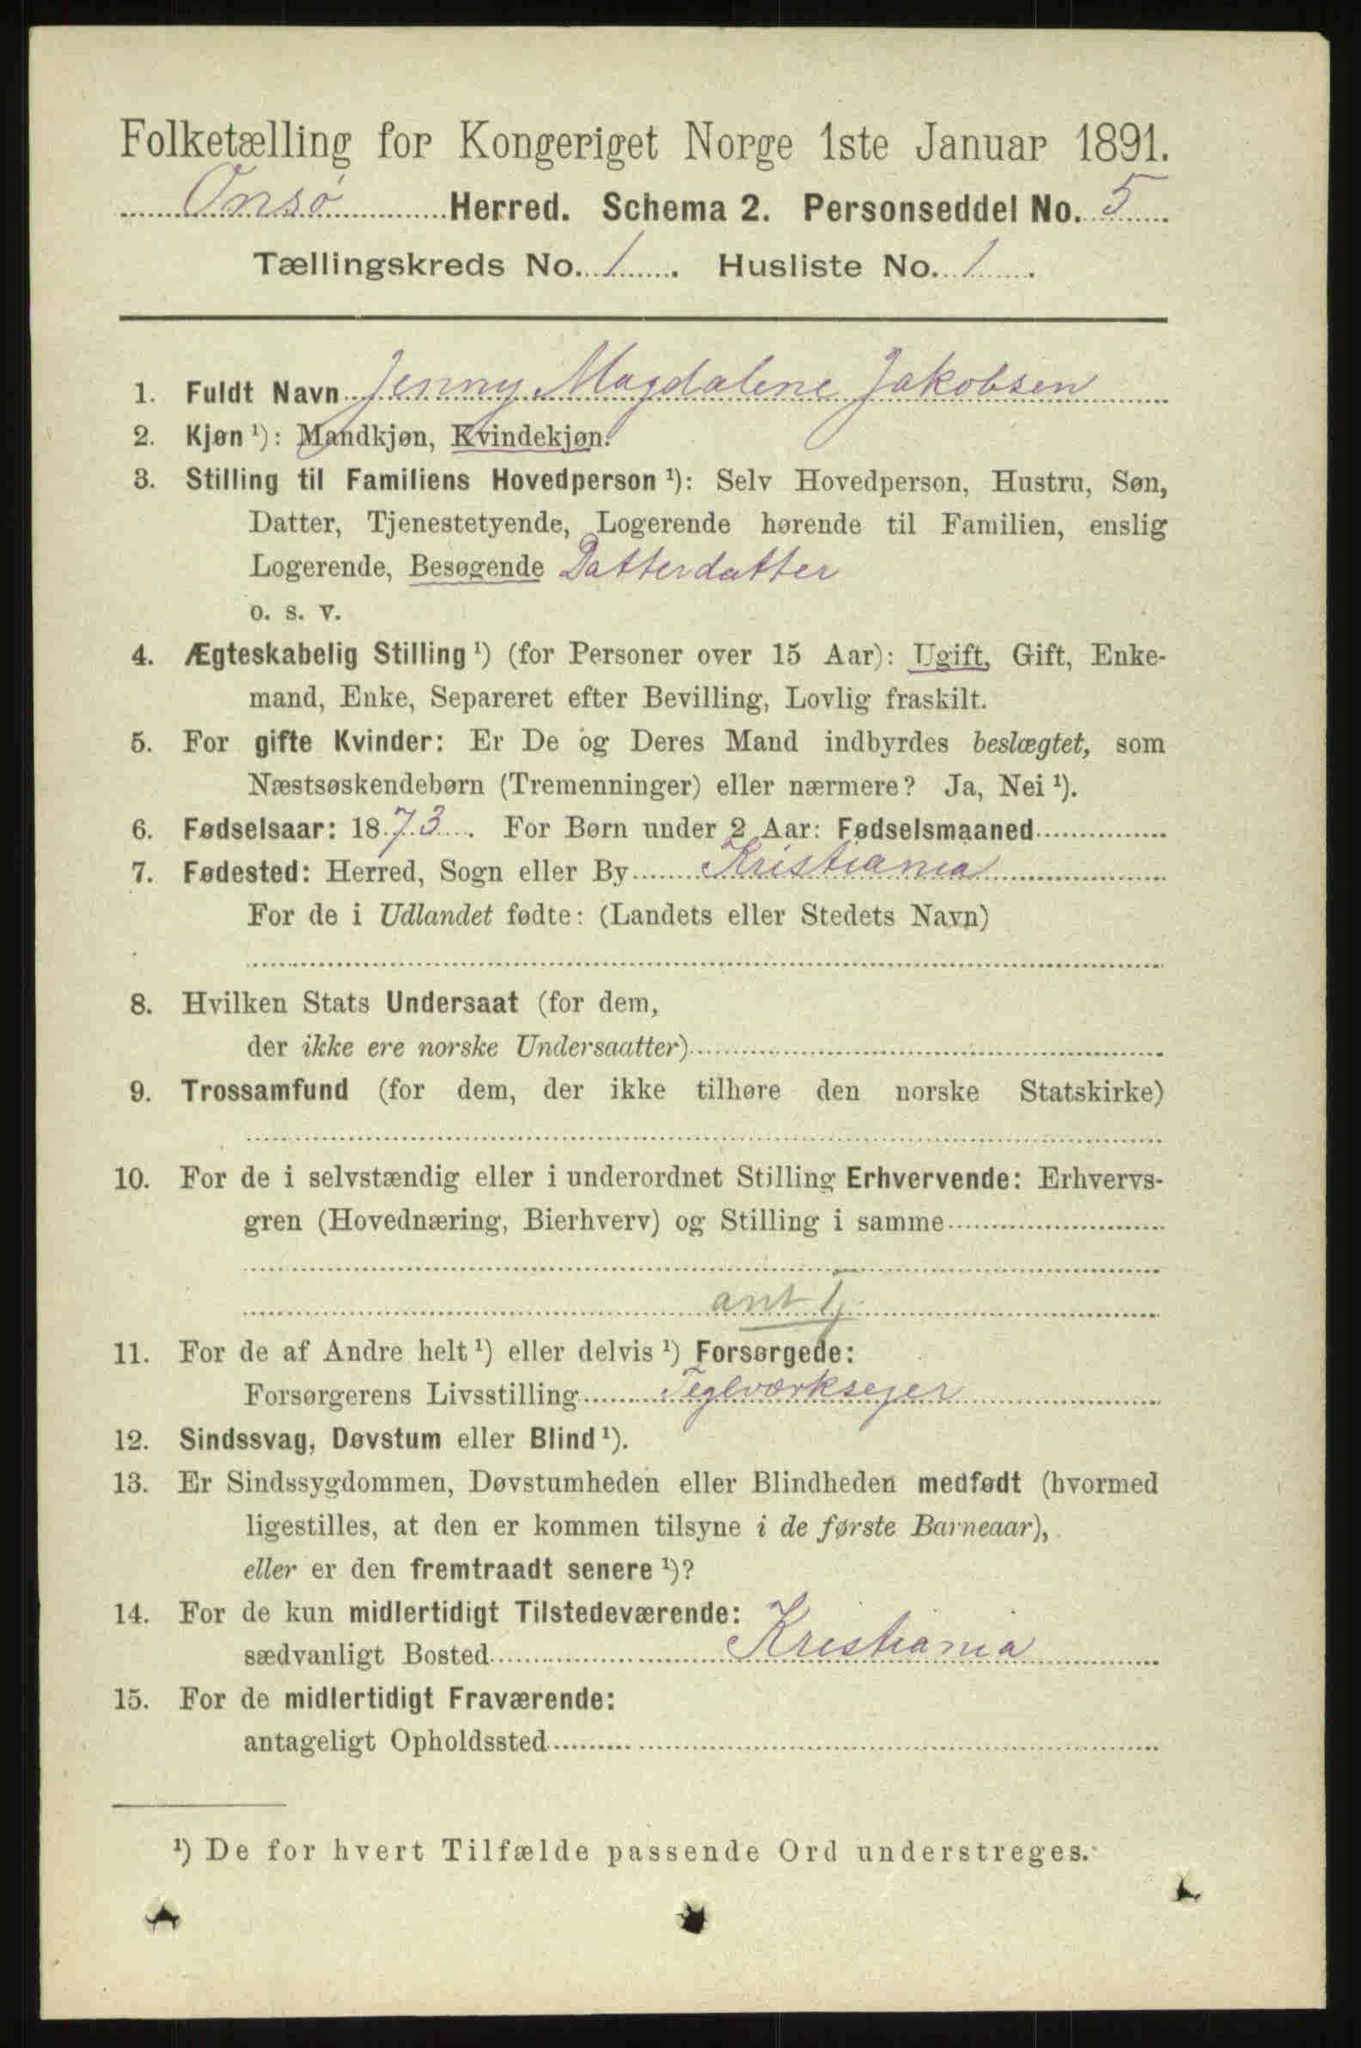 Folketælling for Kongeriget Norge 1ste Januar 1891.
Onsø Herred. Schema 2. Personseddel No. 5
Tællingskreds No. 1. Husliste No. 1.
1. Fuldt Navn Jenny Magdalene Jakobsen
2. Kjøn ¹): Mandkjøn, Kvindekjøn.
3. Stilling til Familiens Hovedperson ¹): Selv Hovedperson, Hustru, Søn,
Datter, Tjenestetyende, Logerende hørende til Familien, enslig
Logerende, Besøgende Datterdatter
o. s. v.
4. Ægteskabelig Stilling ¹) (for Personer over 15 Aar): Ugift, Gift, Enke-
mand, Enke, Separeret efter Bevilling, Lovlig fraskilt.
5. For gifte Kvinder: Er De og Deres Mand indbyrdes beslægtet, som
Næstsøskendebørn (Tremenninger) eller nærmere? Ja, Nei ¹).
6. Fødselsaar: 1873. For Børn under 2 Aar: Fødselsmaaned
7. Fødested: Herred, Sogn eller By Kristiania
For de i Udlandet fødte: (Landets eller Stedets Navn)
8. Hvilken Stats Undersaat (for dem,
der ikke ere norske Undersaatter)
9. Trossamfund (for dem, der ikke tilhøre den norske Statskirke)
10. For de i selvstændig eller i underordnet Stilling Erhvervende: Erhvervs-
gren (Hovednæring, Bierhverv) og Stilling i samme
ant Tj.
11. For de af Andre helt ¹) eller delvis ¹) Forsørgede:
Forsørgerens Livsstilling Teglværksejer
12. Sindssvag, Døvstum eller Blind ¹).
13. Er Sindssygdommen, Døvstumheden eller Blindheden medfødt (hvormed
ligestilles, at den er kommen tilsyne i de første Barneaar),
eller er den fremtraadt senere ¹)?
14. For de kun midlertidigt Tilstedeværende:
sædvanligt Bosted Kristiania
15. For de midlertidigt Fraværende:
antageligt Opholdssted
¹) De for hvert Tilfælde passende Ord understreges.